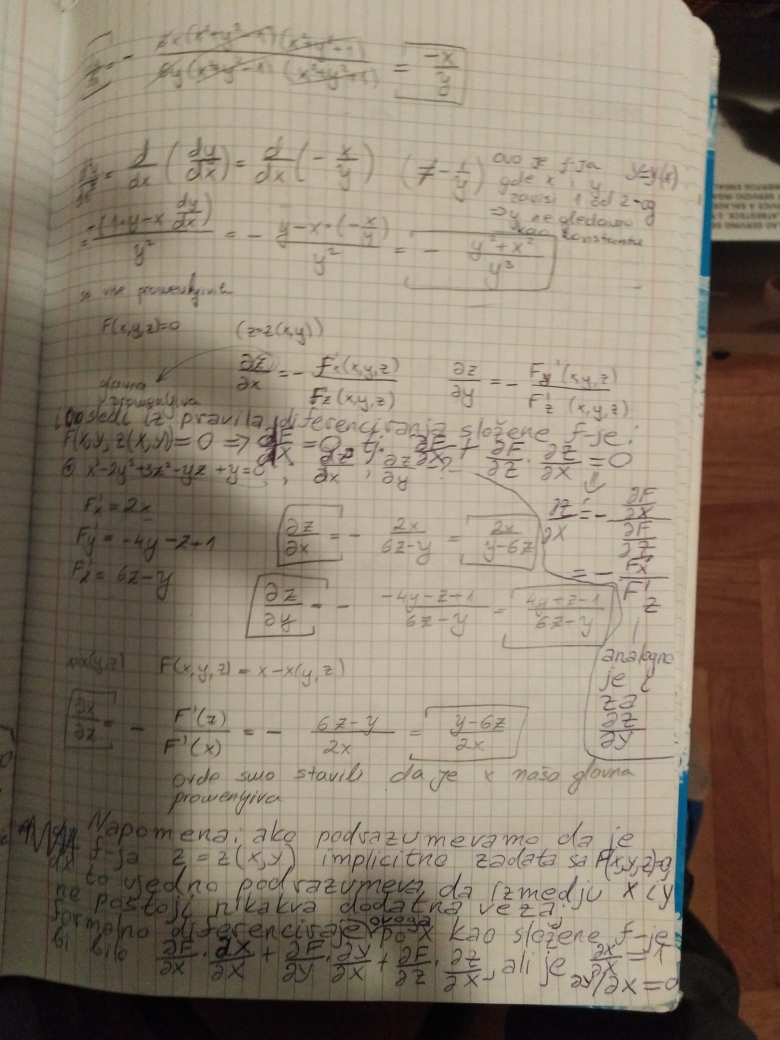 - 6x(x²+y²-1)(x²+y²+1) / 6y(x²+y²-1)(x²+y²+1) = -x/y
d²y/dx² = d/dx (dy/dx) = d/dx (- x/y) (≠ - 1/y) ovo je f-ja y=y(x)
gde x i y
zavisi 1 od 2-og
⇒ y ne gledamo
kao konstantu
= -(1·y-x dy/dx) / y² = - y-x·(-x/y) / y² = - y²+x² / y³
za više promenjivih
F(x,y,z)=0 (z=z(x,y))
∂z/∂x = - F'x(x,y,z) / F'z(x,y,z) ∂z/∂y = - F'y(x,y,z) / F'z(x,y,z)
glavna
promenjiva
(posledi iz pravila diferenciranja složene f-je:
F(x,y,z(x,y))=0 ⇒ ∂F/∂x = 0, tj. ∂F/∂x + ∂F/∂z · ∂z/∂x = 0
x²-2y²+3z²-yz+y=0, ∂z/∂x, ∂z/∂y ?
⇓
F'x = 2x
∂z/∂x = - ∂F/∂x / ∂F/∂z
∂z/∂x = - 2x / 6z-y = 2x / y-6z
F'y = -4y-z+1
= - F'x / F'z
F'z = 6z-y
∂z/∂y = - -4y-z+1 / 6z-y = 4y+z-1 / 6z-y
analogno
je i
za
∂z/∂y
x=x(y,z) F(x,y,z) = x-x(y,z)
∂x/∂z = - F'(z) / F'(x) = - 6z-y / 2x = y-6z / 2x
ovde smo stavili da je x naša glavna
promenjiva
Napomena: ako podrazumevamo da je
f-ja z=z(x,y) implicitno zadata sa F(x,y,z)=0,
to ujedno podrazumeva da između x i y
ne postoji nikakva dodatna veza.
Formalno diferenciranje ovoga po x kao složene f-je
bi bilo ∂F/∂x · ∂x/∂x + ∂F/∂y · ∂y/∂x + ∂F/∂z · ∂z/∂x, ali je ∂x/∂x = 1
∂y/∂x = 0